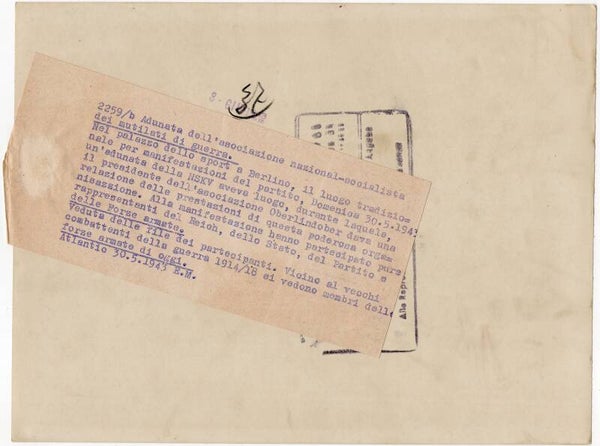 8-
2259/b Adunata dell'asociazione nazional-socialista
dei mutilati di guerra.
Nel palazzo dello sport a Berlino, il luogo tradizio=
nale per manifestazioni del partito, Domenica 30.5.1943
un'adunata della NSKV aveva luogo, durante laquale,
il presidente dell'associazione Oberlindober dava una
relazione delle prestazioni di questa poderosa orga=
nisazzione. Alla manifestazione hanno partecipato pure
rappresentenci del Reich, dello Stato, del Partito e
delle Forze armate.
Veduta delle file dei partecipanti. Vicino al vecchi
combattenti della guerra 1914/18 si vedono membri delle
forze armate di oggi.
Atlantic 30.5.1943 E.M.
Alla